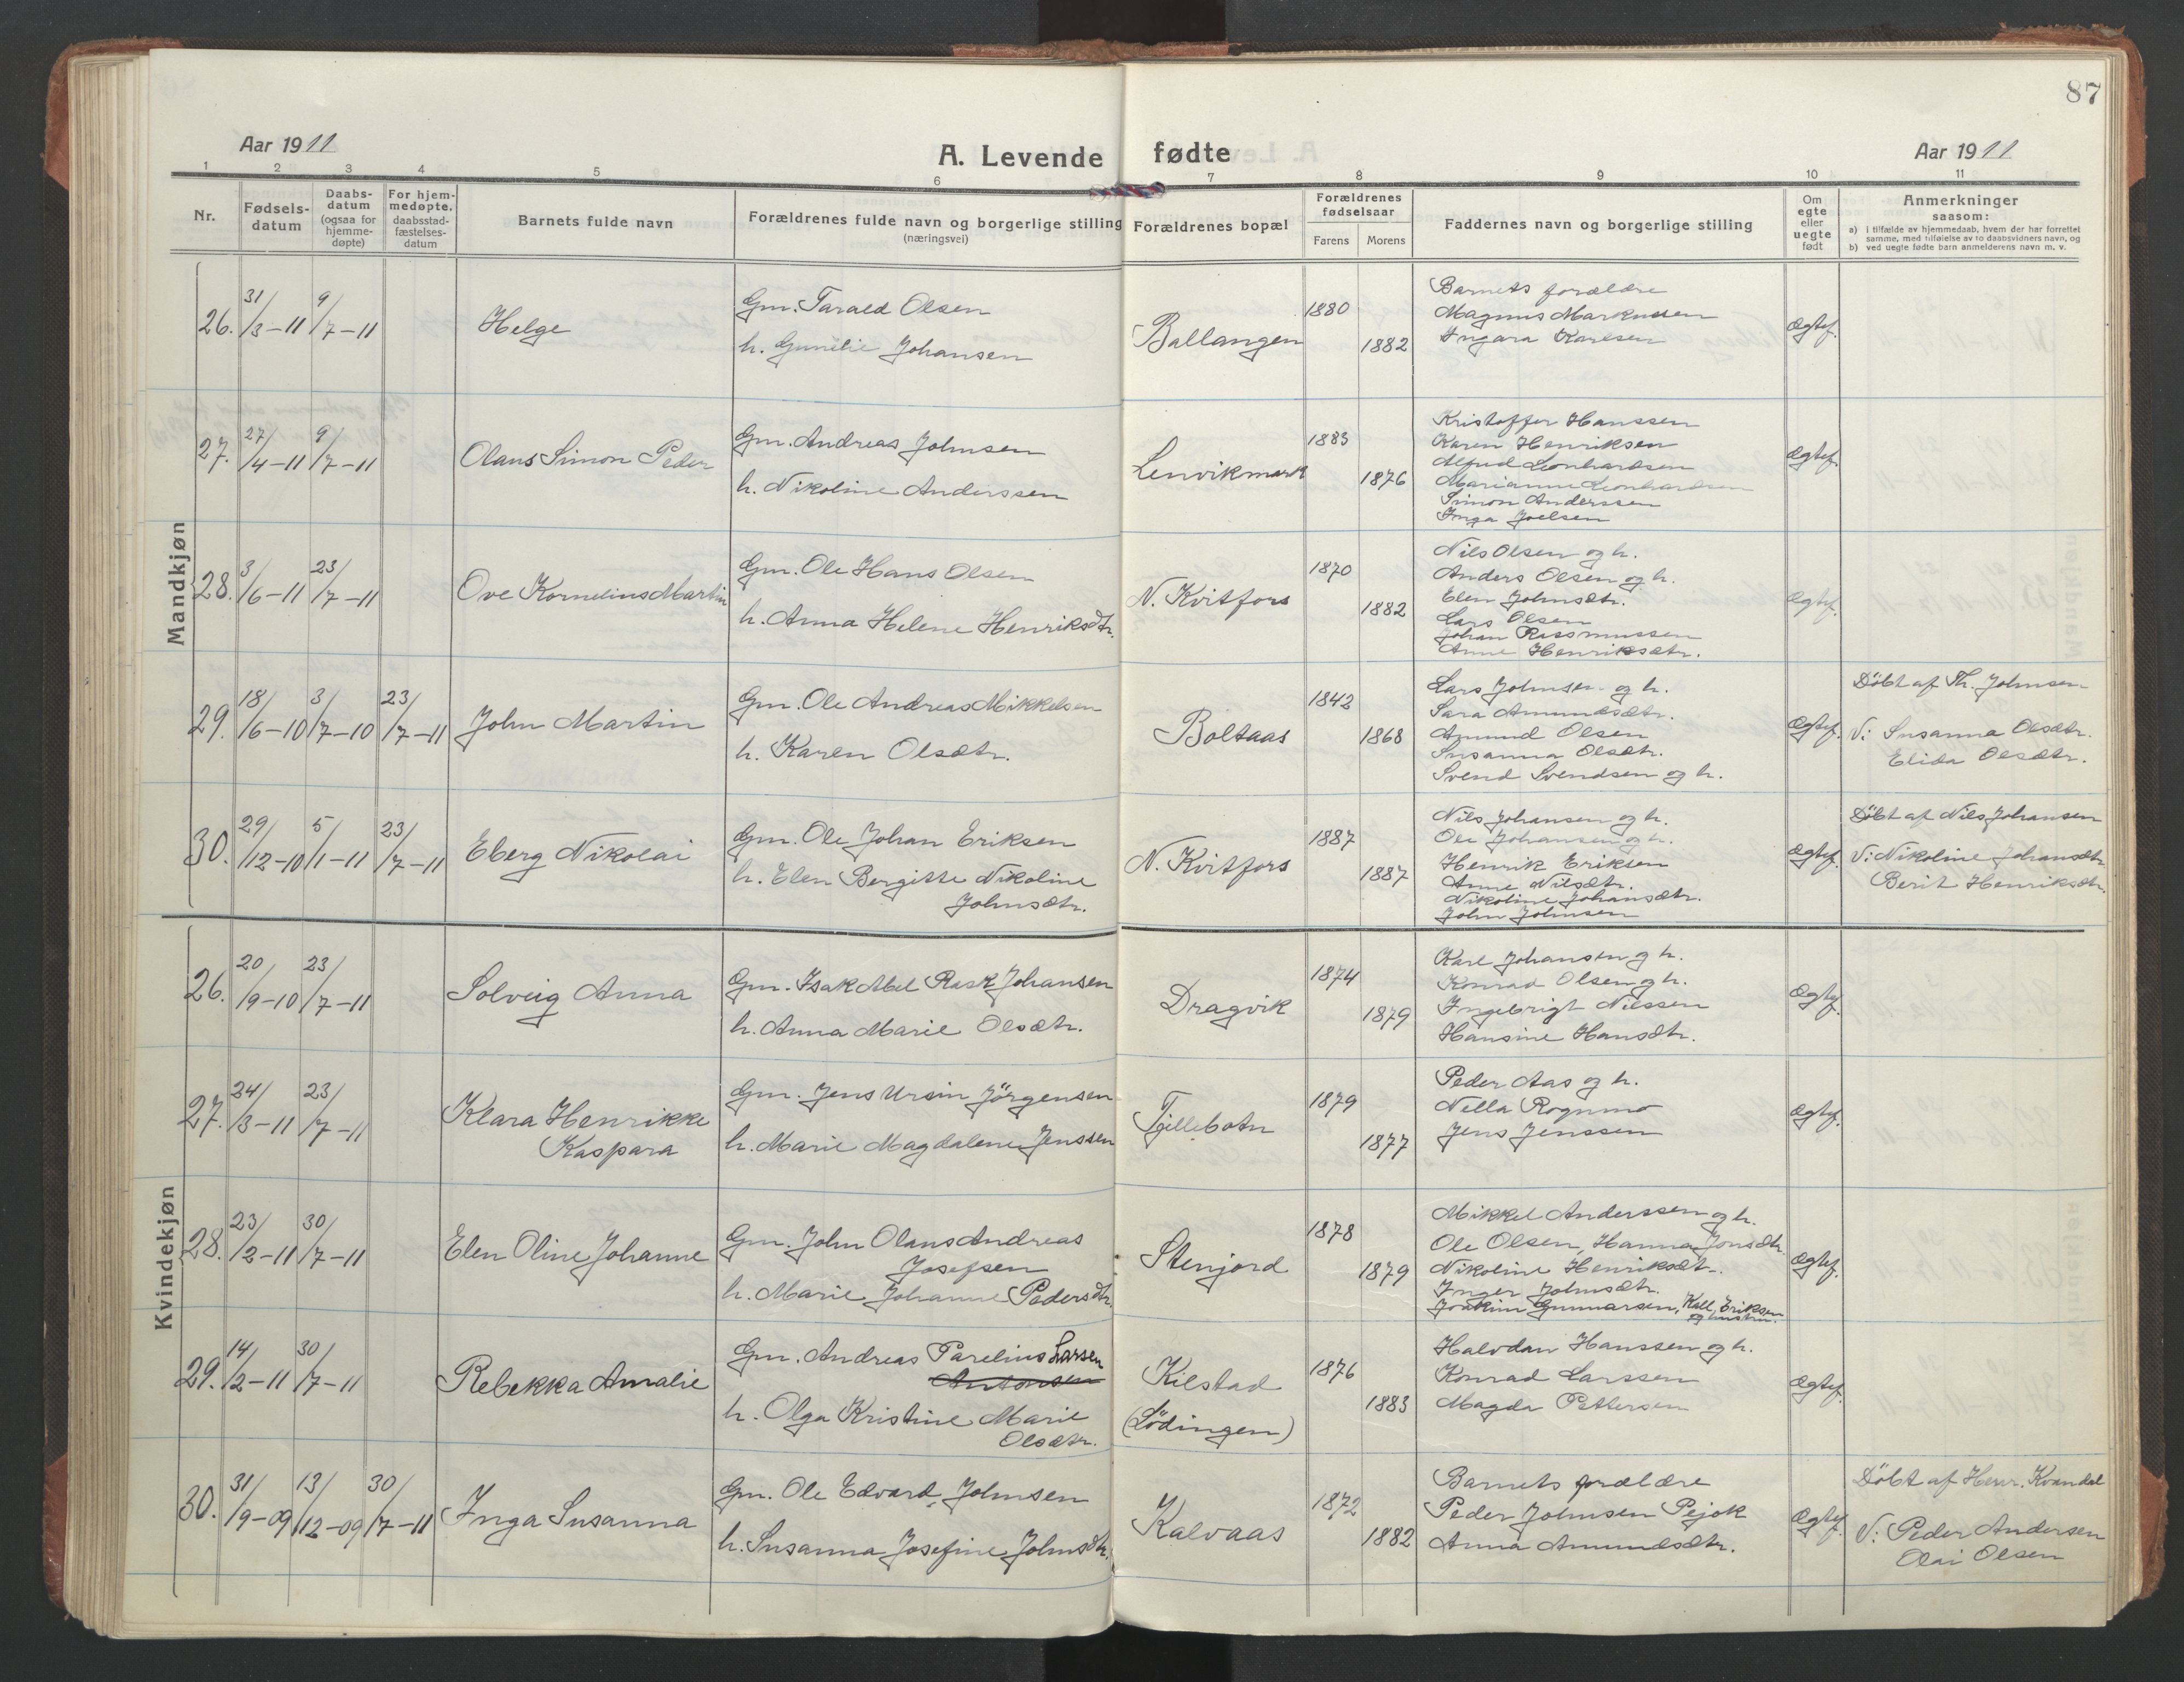 87
Aar 1911
A. Levende fødte
Aar 1911
1 2 3 4 5 6 7 8 9 10 11
Nr.
Fødsels-
datum
Daabs-
datum
(ogsaa for
hjemme-
døpte)
For hjem-
medøpte.
daabsstad-
fæstelses-
datum
Barnets fulde navn
Forældrenes fulde navn og borgerlige stilling
(næringsvei)
Forældrenes bopæl
Forældrenes
fødselsaar
Farens Morens
Faddernes navn og borgerlige stilling
Om
egte
eller
uegte
født
Anmerkninger
saasom:
a) i tilfælde av hjemmedaab, hvem der har forrettet
samme, med tilføielse av to daabsvidners navn, og
b) ved uegte fødte barn anmelderens navn m. v.
Mandkjøn
26. 31/3-11 9/7-11
Helge
Gm. Tarald Olsen
h. Gunelie Johansen
Ballangen
1880
1882
Barnets forældre
Magnus Markussen
Ingara Karlsen
Ægtef.
27. 27/4-11 9/7-11
Olaus Simon Peder
Gm. Andreas Johnsen
h. Nikoline Anderssen
Lenvikmark
1883
1876
Kristoffer Hanssen
Karen Henriksen
Alfred Leonhardsen
Marianne Leonhardsen
Simon Anderssen
Inga Joelsen
Ægtef.
28. 3/6-11 23/7-11
Ove Kornelius Martin
Gm. Ole Hans Olsen
h. Anna Helene Henriksdtr.
N. Kvitfors
1870
1882
Nils Olsen og h.
Anders Olsen og h.
Elen Johnsdtr.
Lars Olsen
Johan Rassmussen
Anne Henriksdtr.
Ægtef.
29. 18/6-10 3/7-10 23/7-11
John Martin
Gm. Ole Andreas Mikkelsen
h. Karen Olsdtr.
Boltaas
1842
1868
Lars Johnsen og h.
Sara Amundsdtr.
Amund Olsen
Susanna Olsdtr.
Svend Svendsen og h.
Ægtef.
Döbt af Th. Johnsen
V: Susanna Olsdtr.
Elida Olsdtr.
30. 29/12-10 5/1-11 23/7-11
Eberg Nikolai
Gm. Ole Johan Eriksen
h. Elen Bergitte Nikoline
Johnsdtr.
N. Kvitfors
1887
1887
Nils Johansen og h.
Ole Johansen og h.
Henrik Eriksen
Anne Nilsdtr.
Nikoline Johansdtr.
John Johnsen
Ægtef.
Döbt af Nils Johansen
V: Nikoline Johansdtr.
Berit Henriksdtr.
Kvindekjøn
26. 20/9-10 23/7-11
Solveig Anna
Gm. Isak Abel Rask Johansen
h. Anna Marie Olsdtr.
Dragvik
1874
1879
Karl Johansen og h.
Konrad Olsen og h.
Ingebrigt Nilssen
Hansine Hansdtr.
Ægtef.
27. 24/3-11 23/7-11
Klara Henrikke
Kaspara
Gm. Jens Ursin Jörgensen
h. Marie Magdalene Jenssen
Tjillebotn
1879
1877
Peder Aas og h.
Nella Rognmo
Jens Jenssen
Ægtef.
28. 23/2-11 30/7-11
Elen Oline Johanne
Gm. John Olaus Andreas
Josefsen
h. Marie Johanne Pedersdtr.
Stenjord
1878
1879
Mikkel Anderssen og h.
Ole Olsen, Hanna Jonsdtr.
Nikoline Henriksdtr.
Inger Johnsdtr.
Joakim Gunnarsen, Kall Eriksen
og hustru.
Ægtef.
29. 14/2-11 30/7-11
Rebekka Amalie
Gm. Andreas Parelius Larsen
Antonsen
h. Olga Kristine Marie
Olsdtr.
Kilstad
(Lödingen)
1876
1883
Halvdan Hanssen og h.
Konrad Larssen
Magda Pettersen
Ægtef.
30. 31/9-09 13/12-09 30/7-11
Inga Susanna
Gm. Ole Edvard Johnsen
h. Susanna Josefine Johnsdtr.
Kalvaas
1872
1882
Barnets forældre
Peder Johnsen Pejok
Anna Amundsdtr.
Ægtef.
Döbt af Henr. Kvandal
V: Peder Andersen
Olai Olsen